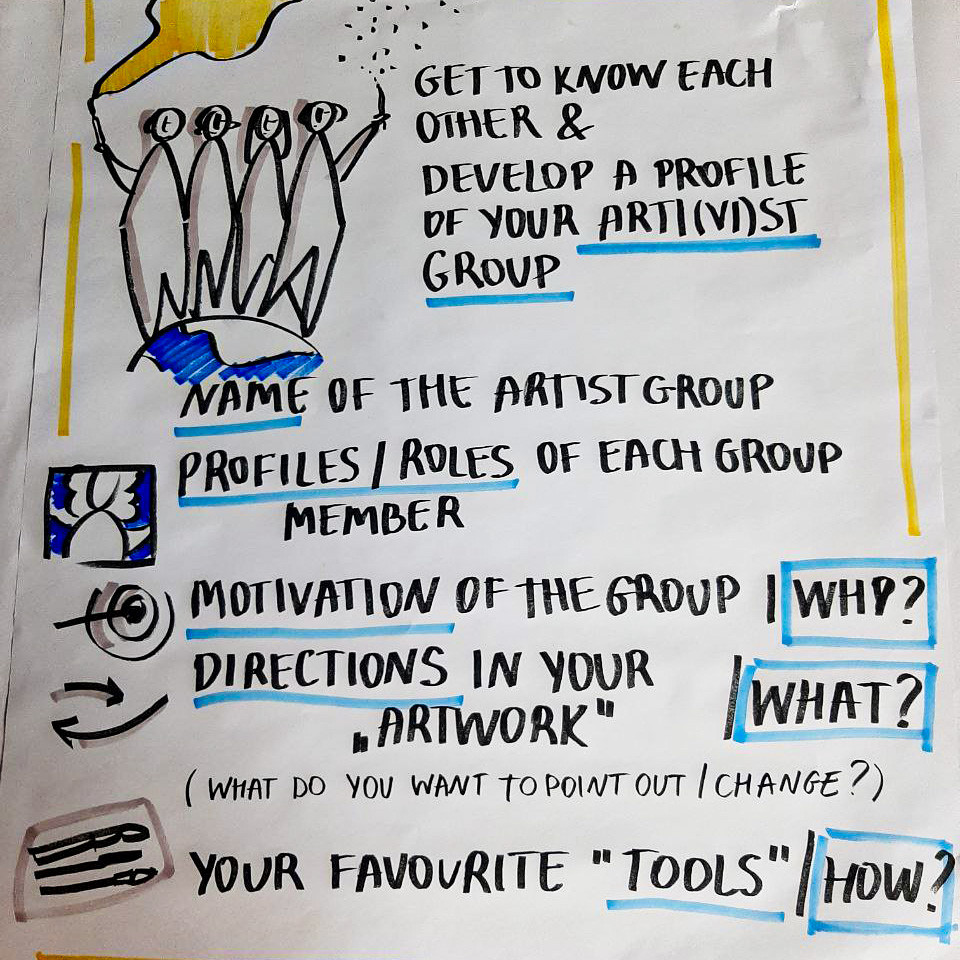 GET TO KNOW EACH
OTHER &
DEVELOP A PROFILE
OF YOUR ARTI(VI)ST
GROUP
NAME OF THE ARTIST GROUP
PROFILES / ROLES OF EACH GROUP
MEMBER
MOTIVATION OF THE GROUP | WHY?
DIRECTIONS IN YOUR
„ARTWORK" | WHAT?
(WHAT DO YOU WANT TO POINT OUT / CHANGE?)
YOUR FAVOURITE "TOOLS" | HOW?